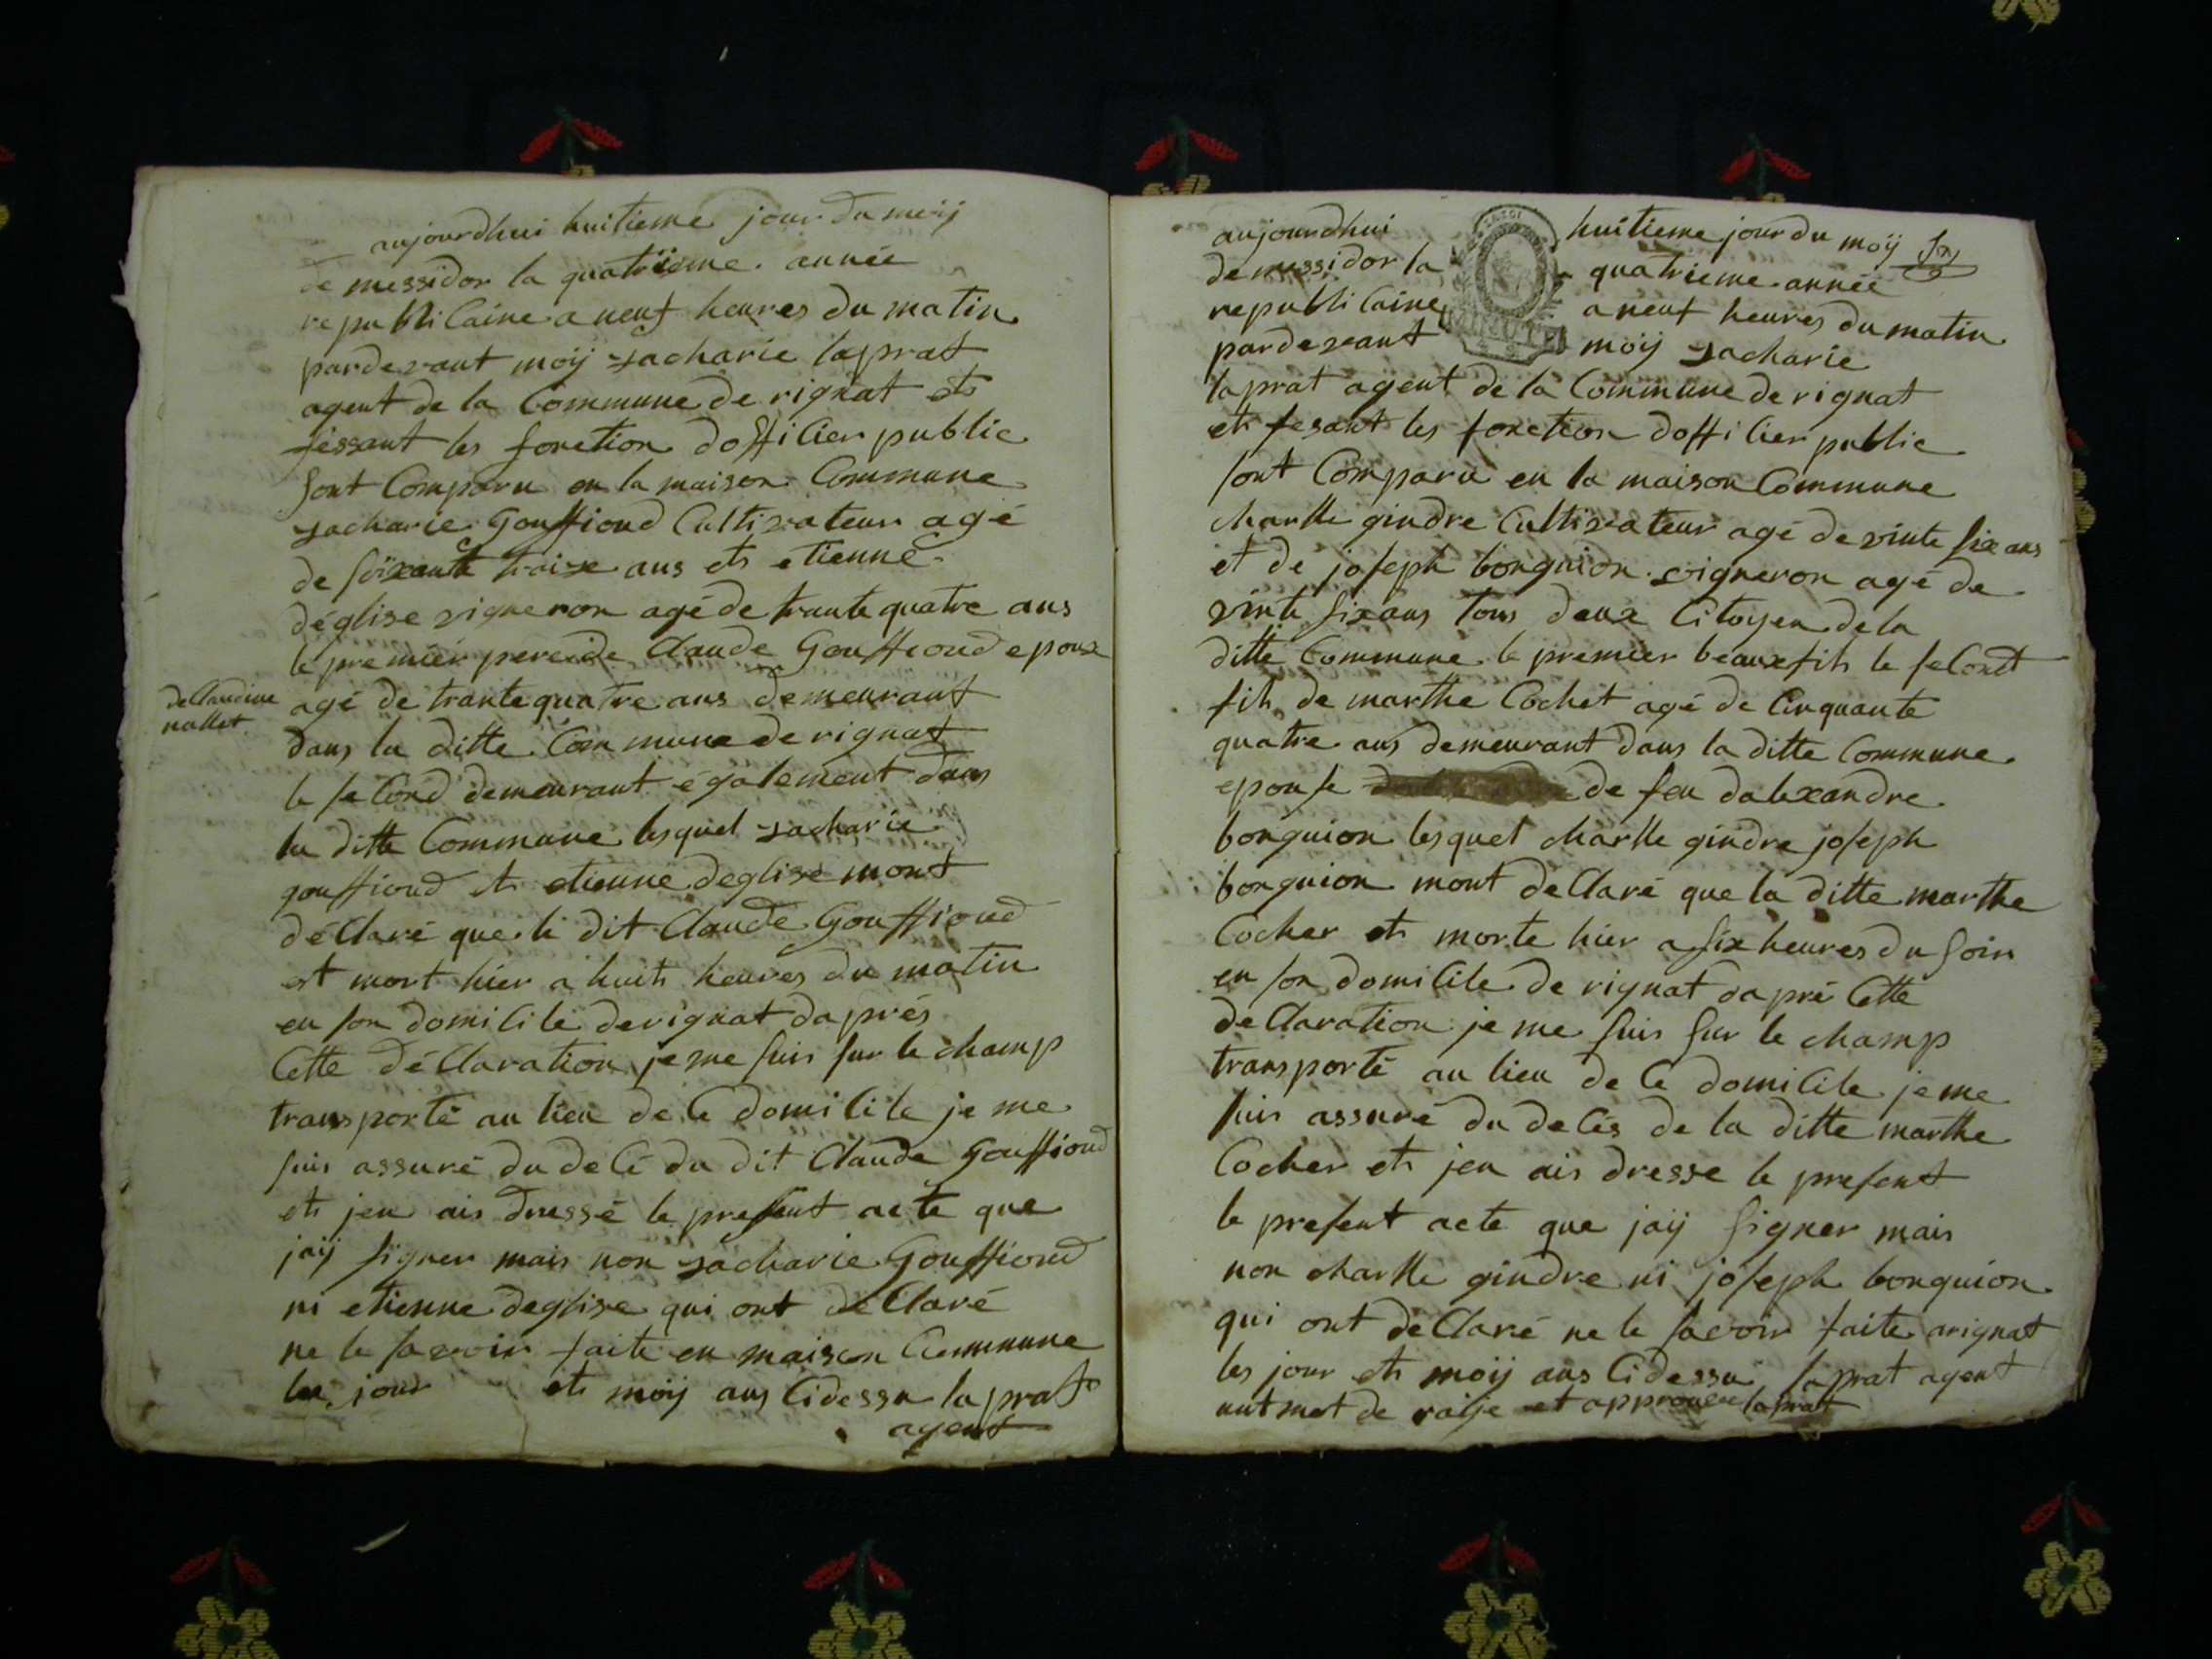 aujourdhui huitieme jour du moij
de messidor la quatrieme année
republicaine a neuf heures du matin
pardevant moij zacharie laprat
agent de la Commune de rignat et
fessant les fonction dofficier public
sont Comparu en la maison Commune
zacharie Gouffioud Cultivateur agé
de soixante traize ans et etienne
déglise vigneron agé de trante quatre ans
le premier pere de Claude Gouffioud epoux
de Claudine
nallet
agé de trante quatre ans demeurant
dans la ditte Commune de rignat
le second demeurant également dans
la ditte Commune lesquel zacharie
gouffioud et etienne deglise mont
déClaré que le dit Claude Gouffioud
est mort hier a huit heures du matin
en son domicile de rignat daprés
Cette déClaration je me suis sur le champ
transporté au lieu de Ce domicile je me
suis assuré du decé du dit Claude Gouffioud
et jen ais dressé le present acte que
jaij signer mais non zacharie Gouffioud
ni etienne deglise qui ont deClaré
ne le savoir faite en maison Commune
les jour et moij ans Cidessu laprat
agent
aujourdhui huitieme jour du moij
de messidor la quatrieme année
republicaine a neuf heures du matin
pardevant moij zacharie
laprat agent de la Commune de rignat
et fesant les fonction dofficier public
sont Comparu en la maison Commune
charlle gindre Cultivateur agé de vinte six ans
et de joseph bonguion vigneron agé de
vinte six ans tous deux Citoyen de la
ditte Commune le premier beaux fils le second
fils de marthe Cochet agé de Cinquante
quatre ans demeurant dans la ditte Commune
epouse de feu dalexandre
bonguion lesquel charlle gindre joseph
bonguion mont deClaré que la ditte marthe
Cocher et morte hier a six heures du soir
en son domicile de rignat dapré Cette
deClaration je me suis sur le champ
transporté au lieu de Ce domicile je me
suis assuré du decés de la ditte marthe
Cocher et jen ais dresse le present
le present acte que jaij signer mais
non charlle gindre ni joseph bonguion
qui ont deClaré ne le savoir faite arignat
les jour et moij ans Cidessu laprat agent
unt mot de raije et approuver laprat